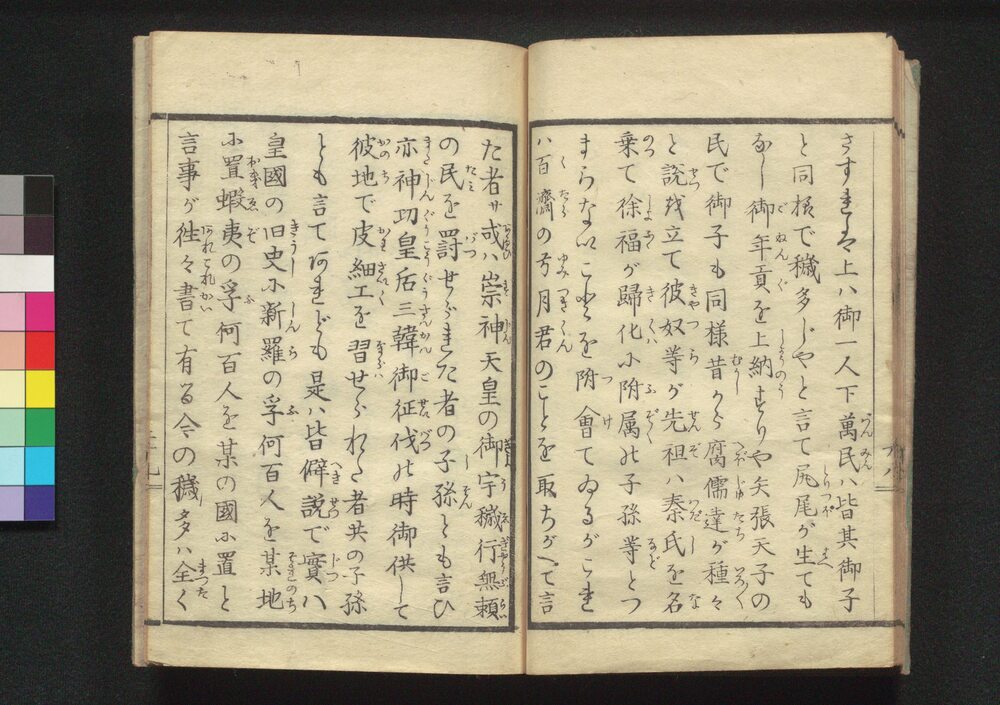 さすれは上ハ御一人下萬民ハ皆其御子
と同根で穢多じやと言て屍尾が生ても
なし御年貢を上納すりや矢張天子の
民で御子も同様昔から腐儒達が種々
と説を立て彼奴等が先祖ハ秦氏を名
乗て徐福が歸化小附属の子孫等とつ
まらないことを附會てゐるがこれ
ハ百濟の弓月君のことを取ちがへて言
た者サ或ハ崇神天皇の御宇穢行無頼
の民を罸せられた者の子孫とも言ひ
亦神功皇后三韓御征伐の時御供して
彼地で皮細工を習せられた者共の子孫
とも言てあれども是ハ皆僻説で實ハ
皇國の旧史小新羅の孚何百人を某地
小置蝦夷の孚何百人を某の國小置と
言事が徃々書て有る今の穢多ハ全く